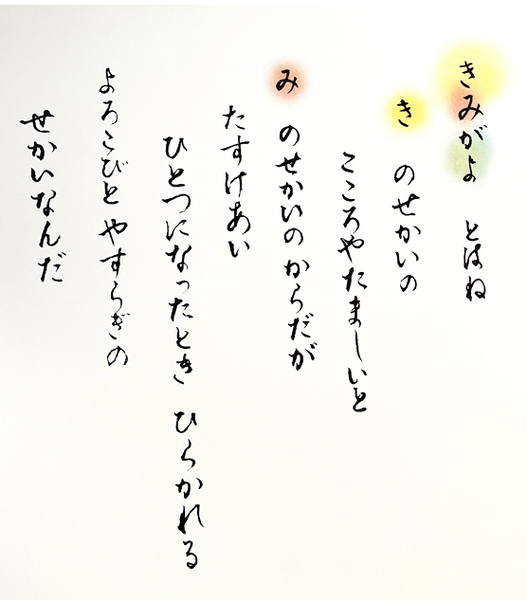 きみがよ とはね
き のせかいの
こころやたましいと
み のせかいの からだが
たすけあい
ひとつになったとき ひらかれる
よろこびと やすらぎの
せかいなんだ